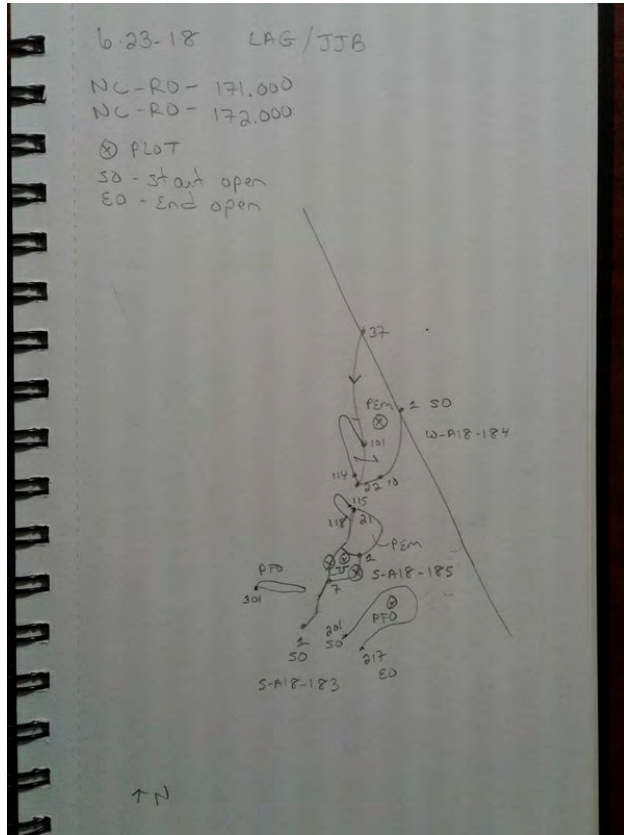 6-23-18 LAG/JJB
NC-RO- 171.000
NC-RO- 172.000
ⓧ PLOT
SO - Start open
EO - End open
37
PEM
1 SO
101
W-A18-184
114
22 10
115
21
118
PEM
1
7
S-A18-185
PFO
301
PFO
1
SO
201
SO
217
EO
S-A18-183
↑N